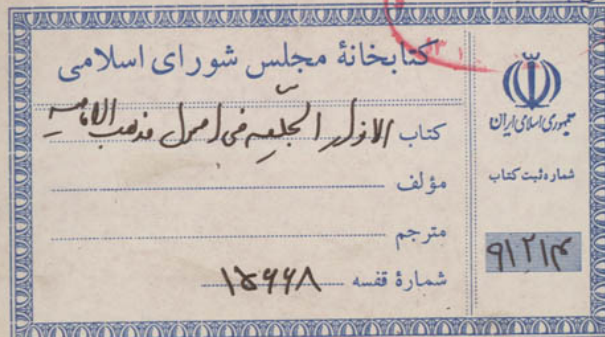 کتابخانهٔ مجلس شورای اسلامی
کتاب الانوار الجلّیه فی اصول مذهب الامامیه
مؤلف
مترجم
شمارهٔ قفسه ۱۵۶۶۸
جمهوری اسلامی ایران
شماره ثبت کتاب
۹۱۲۱۴